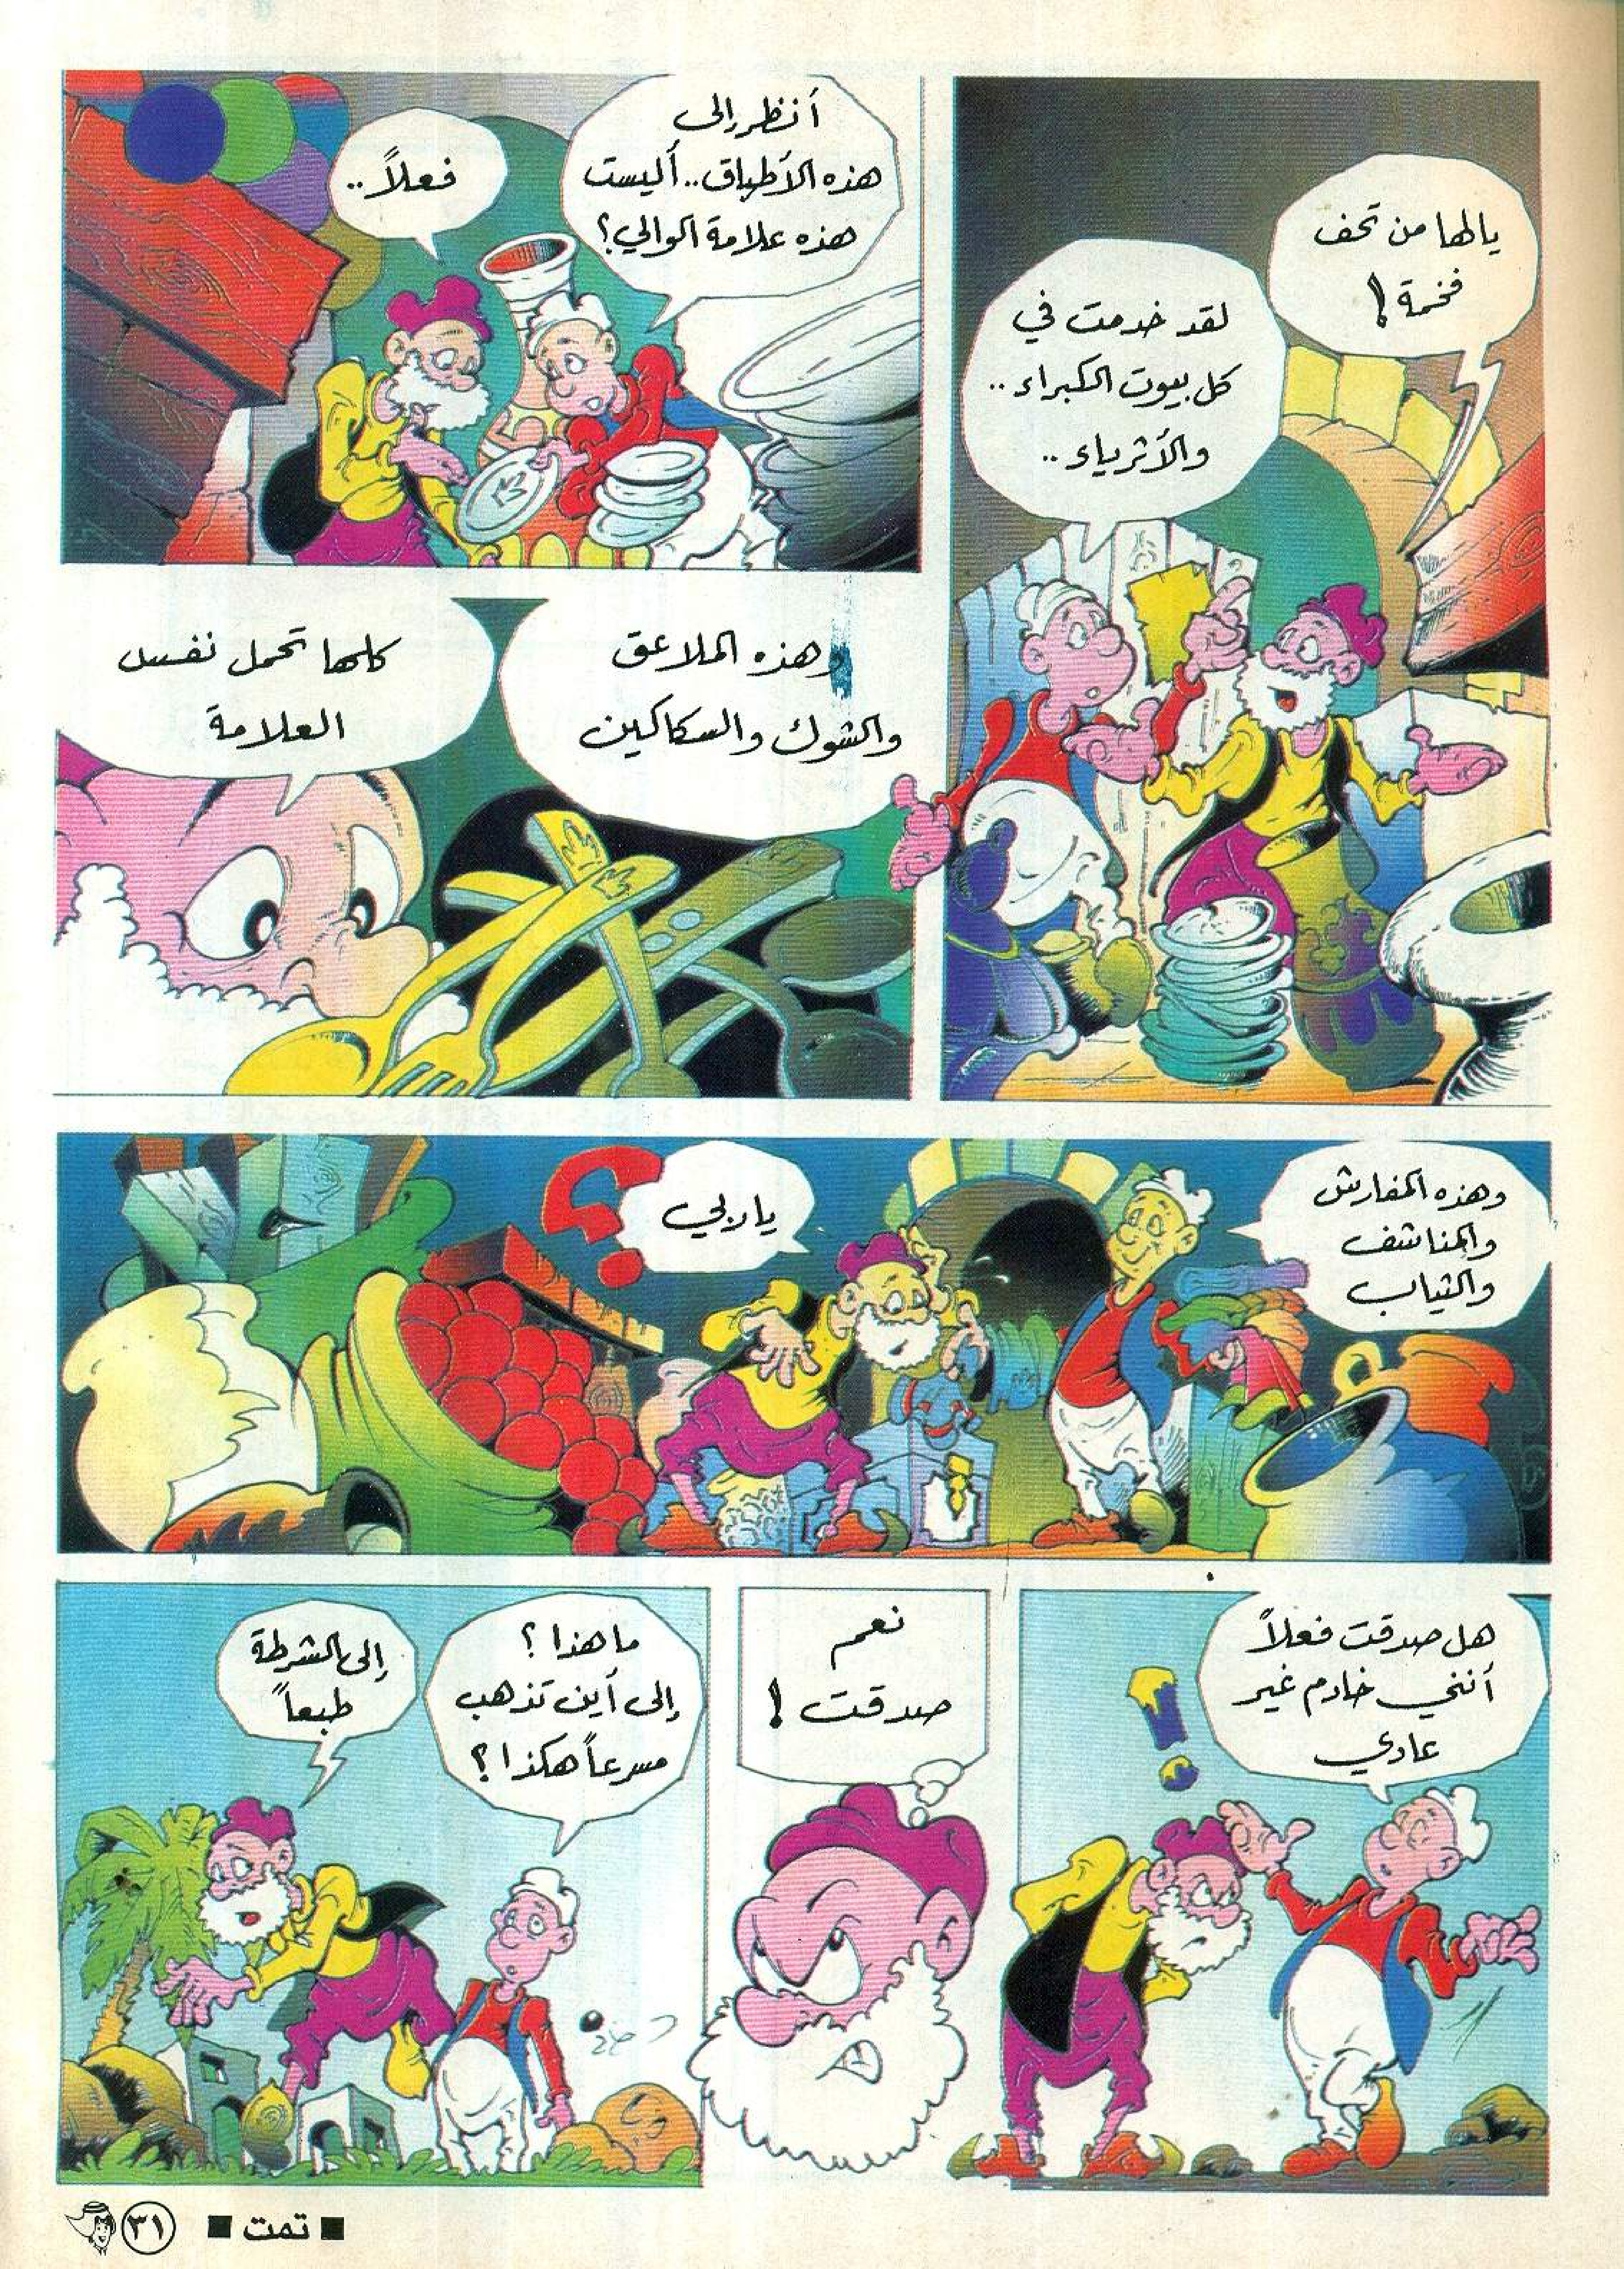 يالها من تحف
فخمة!
لقد خدمت في
كل بيوت الكبراء..
والأثرياء..
أنظر إلى
هذه الأطباق.. أليست
هذه علامة الوالي؟
فعلاً..
وهذه الملاعق
والشوك والسكاكين
كلها تحمل نفس
العلامة
وهذه المفارش
والمناشف
والثياب
ياربي
؟
هل صدقت فعلاً
أنني خادم غير
عادي
!
نعم
صدقت!
ما هذا؟
إلى أين تذهب
مسرعاً هكذا؟
إلى الشرطة
طبعاً
■ تمت ■
٣١